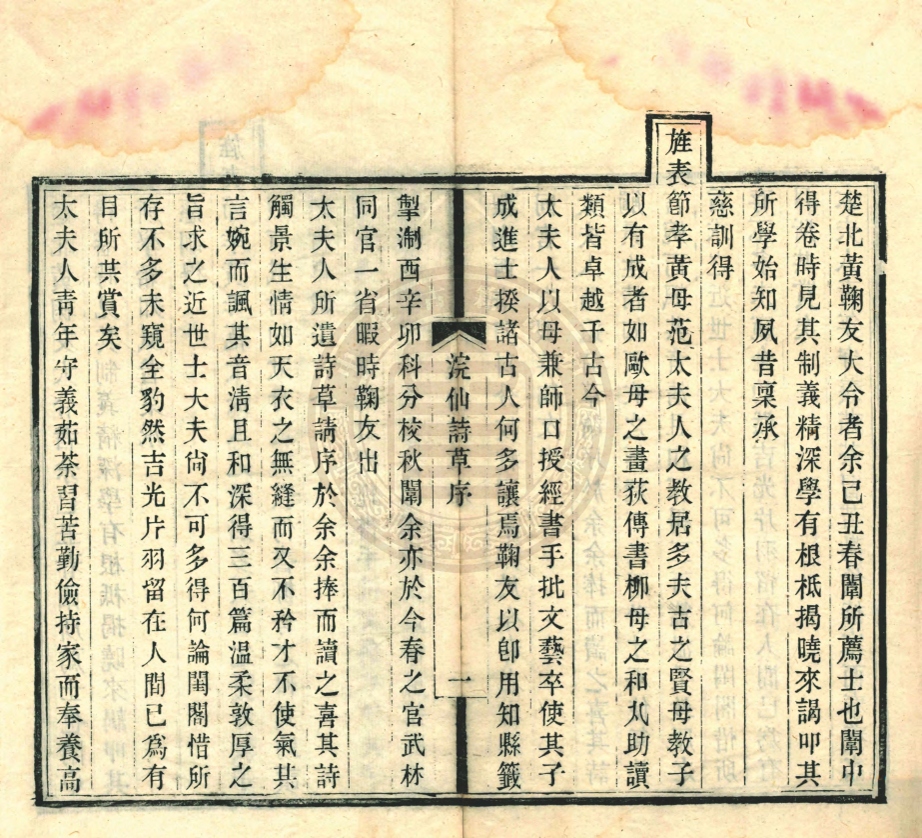 楚北黃鞠友大令者余己丑春闈所薦士也闈中
得卷時見其制義精深學有根柢揭曉來謁叩其
所學始知夙昔稟承
慈訓得
旌表節孝黃母范太夫人之教居多夫古之賢母教子
以有成者如歐母之畫荻傳書柳母之和丸助讀
類皆卓越千古今
太夫人以母兼師口授經書手批文藝卒使其子
成進士揆諸古人何多讓焉鞠友以卽用知縣籤
浣仙詩草序
一
掣淛西辛卯科分校秋闈余亦於今春之官武林
同官一省暇時鞠友出
太夫人所遺詩草請序於余余捧而讀之喜其詩
觸景生情如天衣之無縫而又不矜才不使氣其
言婉而諷其音淸且和深得三百篇温柔敦厚之
旨求之近世士大夫尙不可多得何論閨閤惜所
存不多未窺全豹然吉光片羽留在人間已爲有
目所共賞矣
太夫人靑年守義茹荼習苦勤儉持家而奉養高